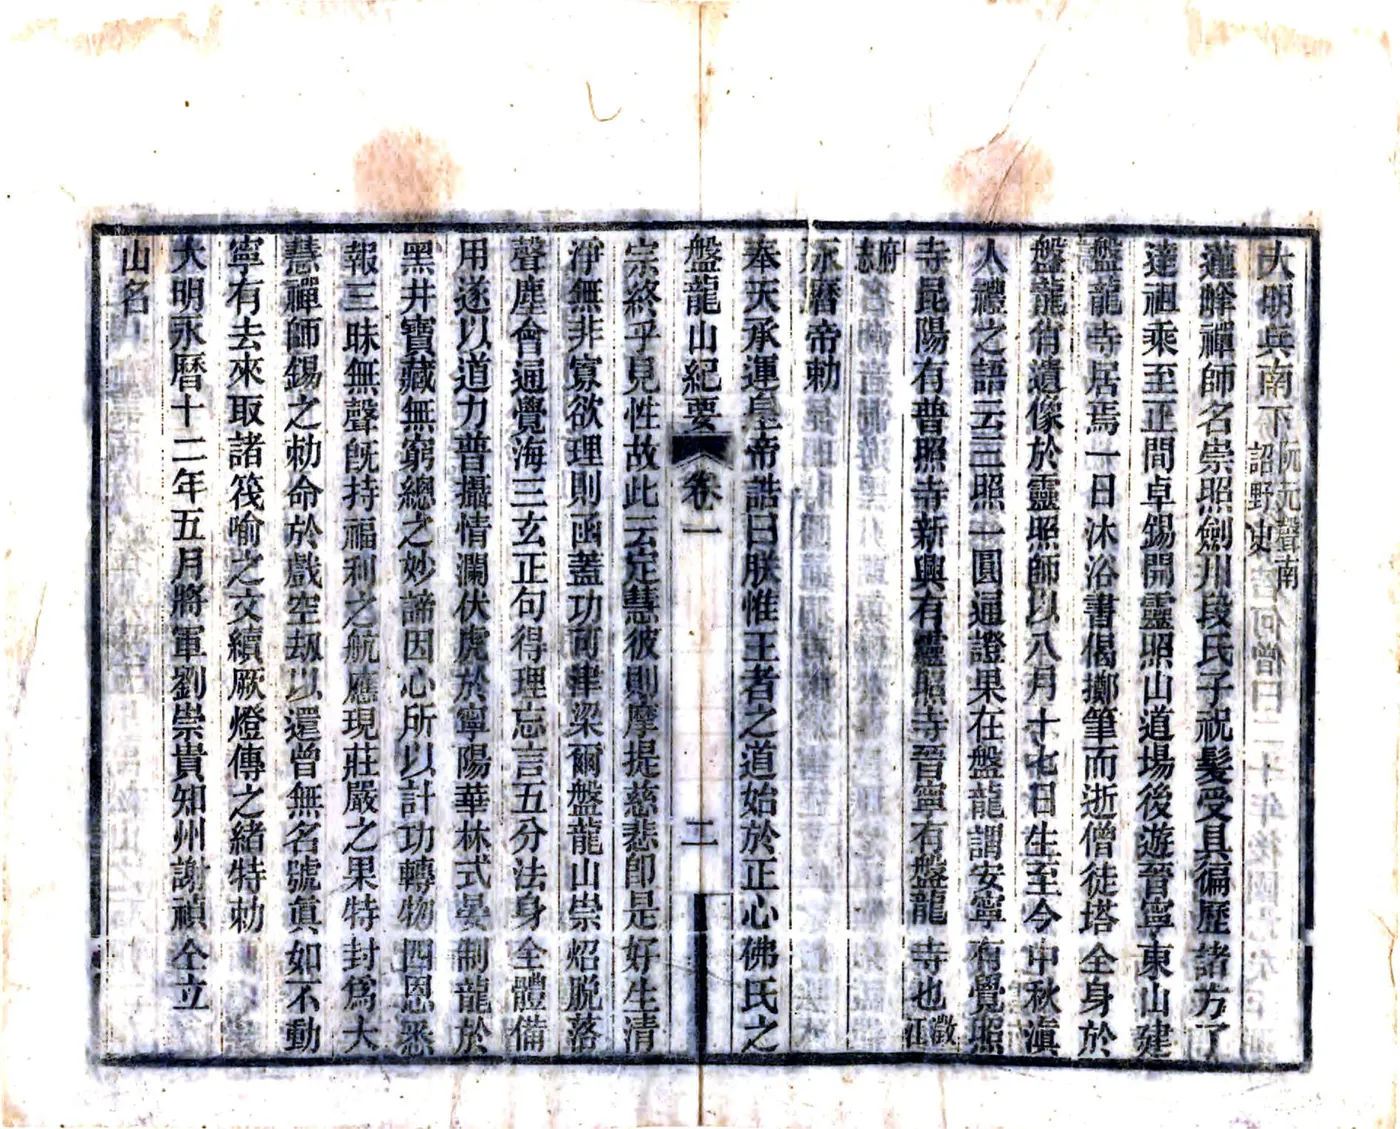 大明兵南下阮元聲南
詔野史
蓮峰禪師名崇照劍川段氏子祝髮受具徧歷諸方了
達祖乘至正間卓錫開靈照山道場後遊晉寧東山建
盤龍寺居焉一日沐浴書偈擲筆而逝僧徒塔全身於
盤龍肖遺像於靈照師以八月十七日生至今中秋滇
人禮之語云三照一圓通證果在盤龍謂安寧有覺照
寺昆陽有普照寺新興有靈照寺晉寧有盤龍寺也澂江
府志
永曆帝勅
奉天承運皇帝誥曰朕惟王者之道始於正心佛氏之
盤龍山紀要 卷一 二
宗終乎見性故此云定慧彼則摩提慈悲卽是好生清
淨無非寡欲理則函蓋功同津梁爾盤龍山崇炤脫落
聲塵會通覺海三玄正句得理忘言五分法身全體備
用遂以道力普攝情瀾伏虎於寧陽華林式晏制龍於
黑井寶藏無窮總之妙諦因心所以計功轉物四恩悉
報三昧無聲旣持福利之航應現莊嚴之果特封爲大
慧禪師錫之勅命於戲空劫以還曾無名號眞如不動
寧有去來取諸筏喻之文續厥燈傳之緒特勅
大明永曆十二年五月將軍劉崇貴知州謝禎仝立
山名